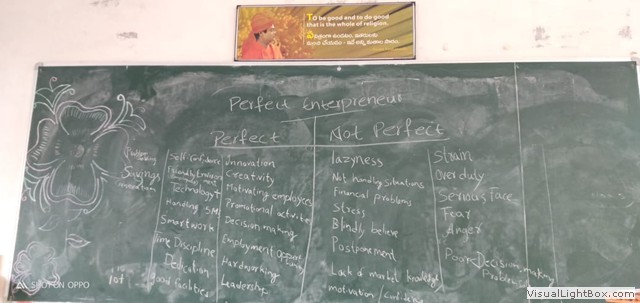 To be good and to do good
that is the whole of religion.
Perfect Enterpreneur
Perfect
Not Perfect
Savings
Self Confidence
Technology
Handling SM
Smartwork
Time Discipline
Dedication
good facilities
innavation
Creativity
Motivating employees
Promotional activities
Decision making
Employment oppor
tunity
Hardworking
Leadership
lazyness
Not handling situations
Financial problems
Stress
Blindly believe
Postponement
Lack of market knowledge
motivation
Strain
Over duty
Serious face
Fear
Anger
Poor Decision making
Problem
SHOT ON OPPO
VisualLightBox.com